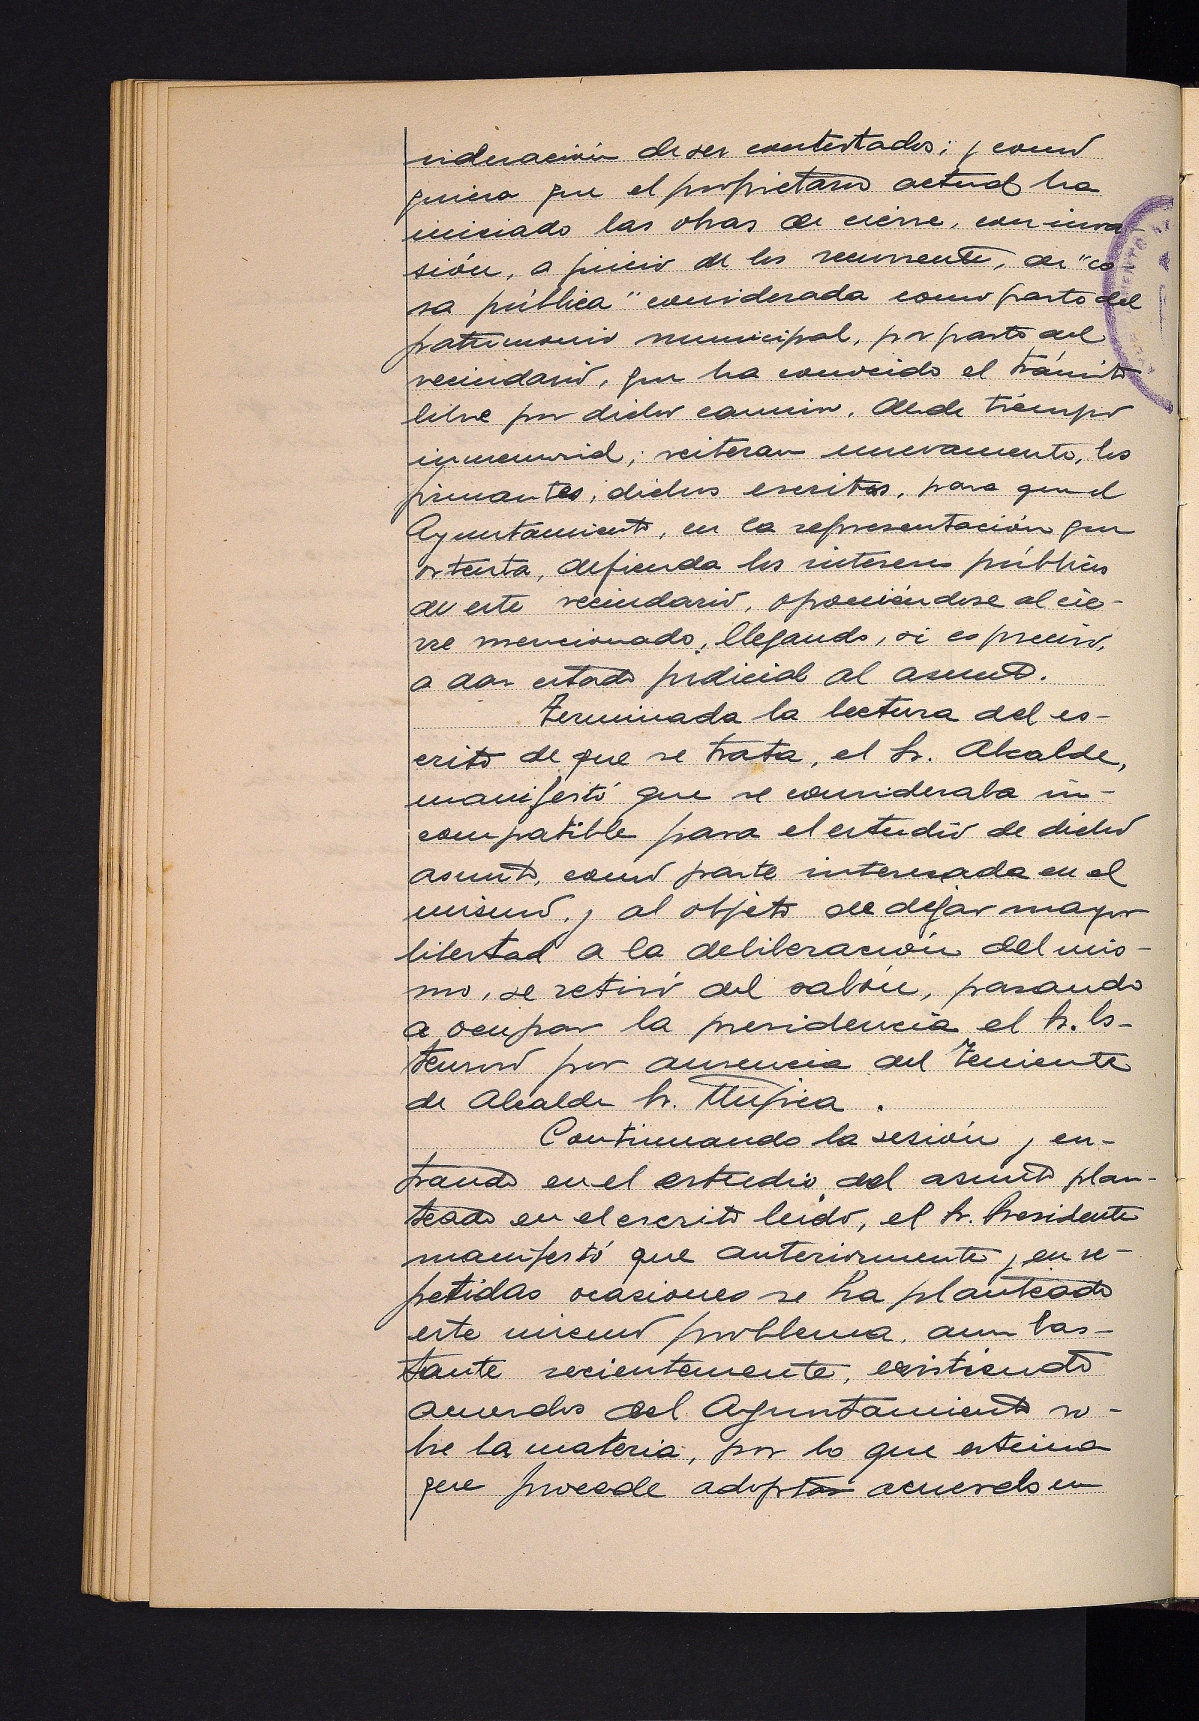 sideración de ser contestados; y como
quiera que el propietario actual ha
iniciado las obras de cierre, con inva
sión, a juicio de los recurrentes, de "co
sa pública" considerada como parte del
patrimonio municipal, por parte del
vecindario, que ha conocido el tránsito
libre por dicho camino, desde tiempo
inmemorial; reiteran nuevamente, los
firmantes, dichos escritos, para que el
Ayuntamiento, en la representación que
ostenta, defienda los intereses públicos
de este vecindario, oponiéndose al cie-
rre mencionado, llegando, si es preciso,
a dar estado judicial al asunto.
Terminada la lectura del es-
crito de que se trata, el Sr. Alcalde,
manifestó que se consideraba in-
compatible para el estudio de dicho
asunto, como parte interesada en el
mismo, y al objeto de dejar mayor
libertad a la deliberación del mis-
mo, se retiró del salón, pasando
a ocupar la presidencia el Sr. Es-
tensoro por ausencia del Teniente
de Alcalde Sr. Mújica.
Continuando la sesión y en-
trando en el estudio del asunto plan-
teado en el escrito leído, el Sr. Presidente
manifestó que anteriormente y en re-
petidas ocasiones se ha planteado
este mismo problema, aun bas-
tante recientemente, existiendo
acuerdos del Ayuntamiento so-
bre la materia, por lo que estima
que procede adoptar acuerdo en